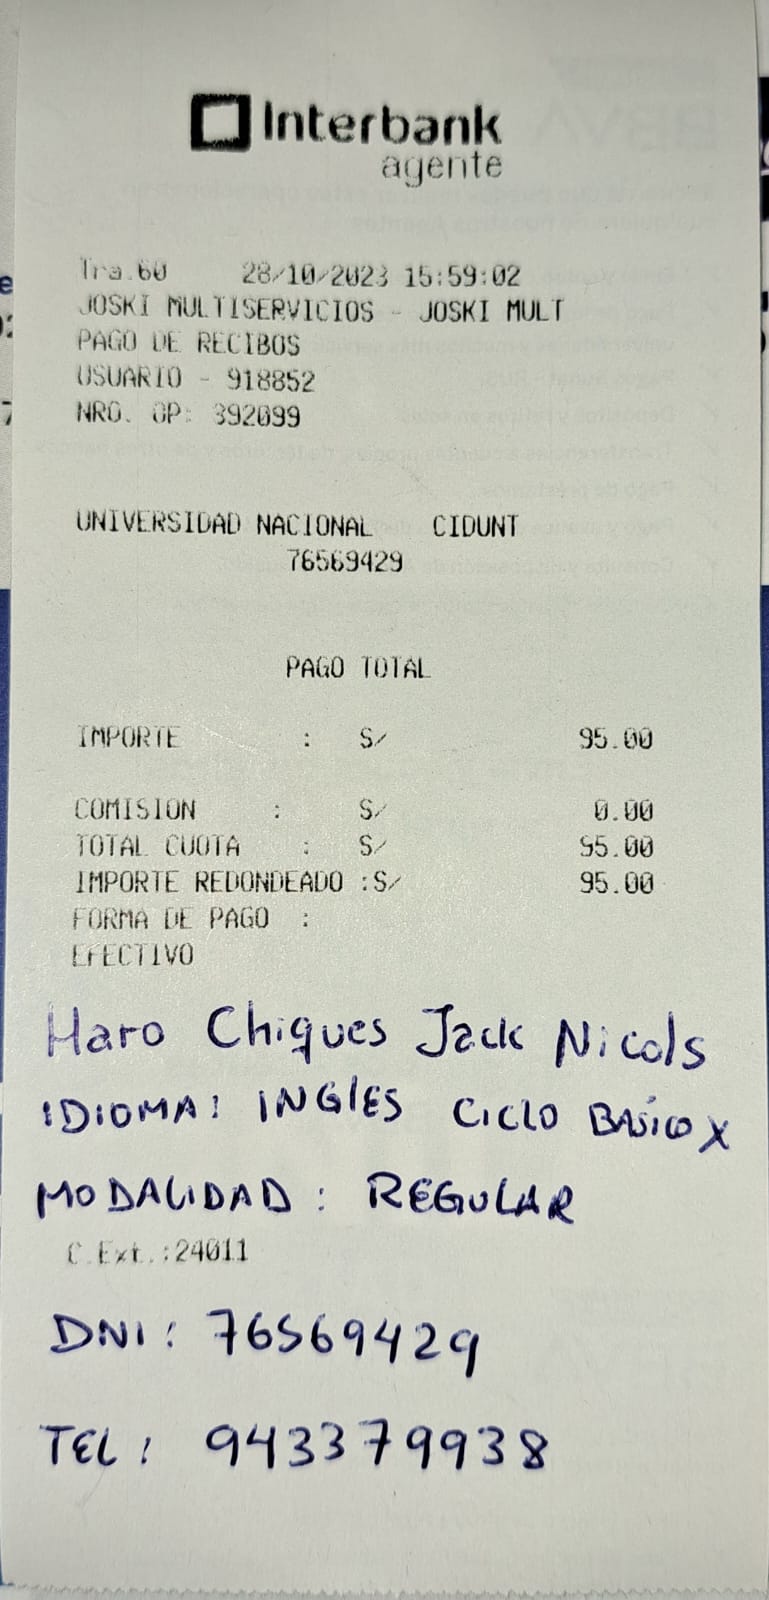 Interbank
agente
Tra.60 28/10/2023 15:59:02
JOSKI MULTISERVICIOS - JOSKI MULT
PAGO DE RECIBOS
USUARIO - 918852
NRO. OP: 392099
UNIVERSIDAD NACIONAL CIDUNT
76569429
PAGO TOTAL
IMPORTE : S/ 95.00
COMISION : S/ 0.00
TOTAL CUOTA : S/ 95.00
IMPORTE REDONDEADO :S/ 95.00
FORMA DE PAGO :
EFECTIVO
Haro Chiques Jack Nicols
IDIOMA: INGLES CICLO BASICO X
MODALIDAD: REGULAR
C.Ext.:24011
DNI: 76569429
TEL: 943379938